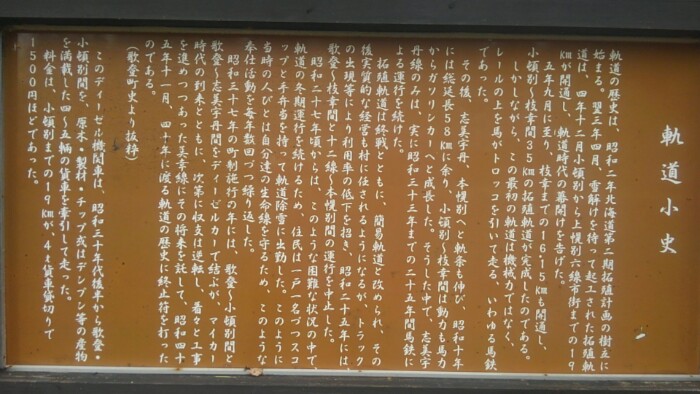 軌道小史
軌道の歴史は、昭和二年北海道第二期拓殖計画の樹立に
始まる。翌三年四月、雪解けを待って起工された拓殖軌
道は、四年十二月小頓別から上幌別六線市街までの19
㎞が開通し、軌道時代の幕開けを告げた。
五年九月に至り、枝幸までの16.15㎞も開通し、
小頓別〜枝幸間35㎞の拓殖軌道が完成したのである。
しかしながら、この最初の軌道は機械力ではなく、
レールの上を馬がトロッコを引いて走る、いわゆる馬鉄
であった。
その後、志美宇丹、本幌別へと軌条も伸び、昭和十年
には総延長58㎞に余り、小頓別〜枝幸間は動力も馬力
からガソリンカーへと成長した。そうした中で、志美宇
丹線のみは、実に昭和三十三年までの二十五年間馬鉄に
よる運行を続けた。
拓殖軌道は終戦とともに、簡易軌道と改められ、その
後実質的な経営も村に任されるようになるが、トラック
の出現等により利用率の低下を招き、昭和二十五年には、
歌登〜枝幸間と十二線〜本幌別間の運行を中止した。
昭和二十七年頃からは、このような困難な状況の中で、
軌道の冬期運行を続けるため、住民は一戸一名づつスコ
ップと手弁当を持って軌道除雪に出勤した。このように
当時の人びとは自分達の生命線を守るため、このような
奉仕活動を毎年数回づつ繰り返した。
昭和三十七年の町制施行の年には、歌登〜小頓別間と
歌登〜志美宇丹間をディーゼルカーで結ぶが、マイカー
時代の到来とともに、次第に収支は逆転し、着々と工事
を進めつつあった美幸線にその将来を託して、昭和四十
五年十一月、四十年に渡る軌道の歴史に終止符を打った
のである。
(歌登町史より抜粋)
このディーゼル機関車は、昭和三十年代後半から歌登・
小頓別間を、原木・製材・チップ或はデンプン等の産物
を満載した四〜五輌の貨車を牽引して走った。
料金は、小頓別までの19㎞が、4t貨車貸切りで
1500円ほどであった。